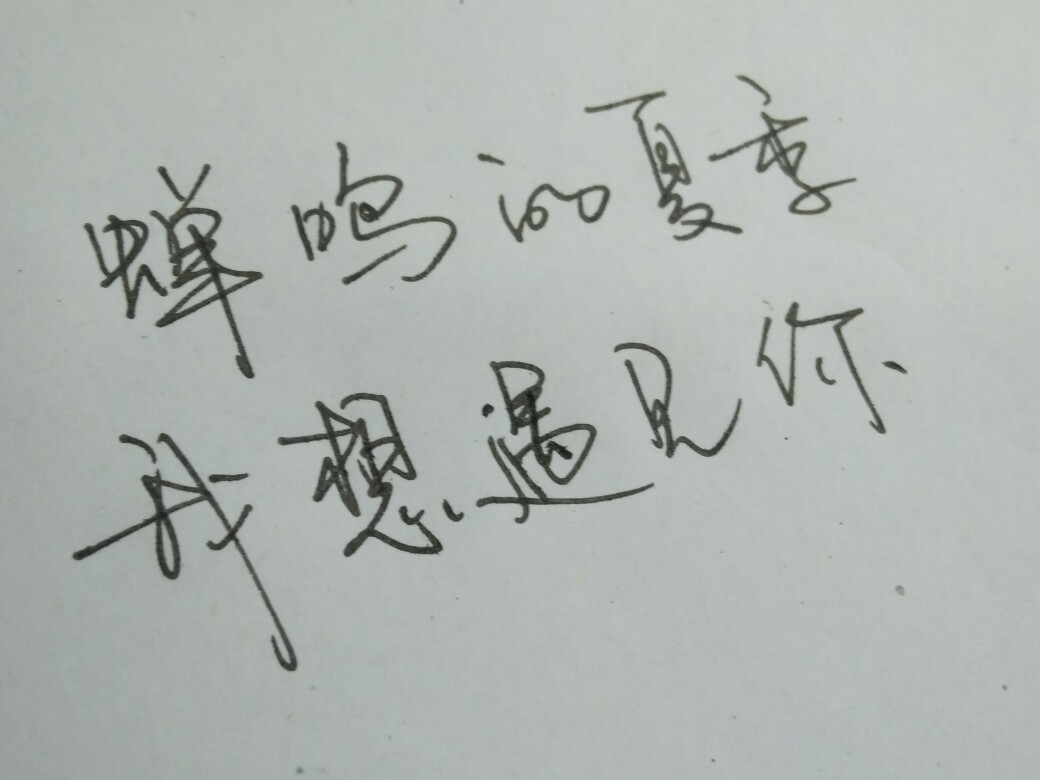 蝉鸣的夏季
我想遇见你